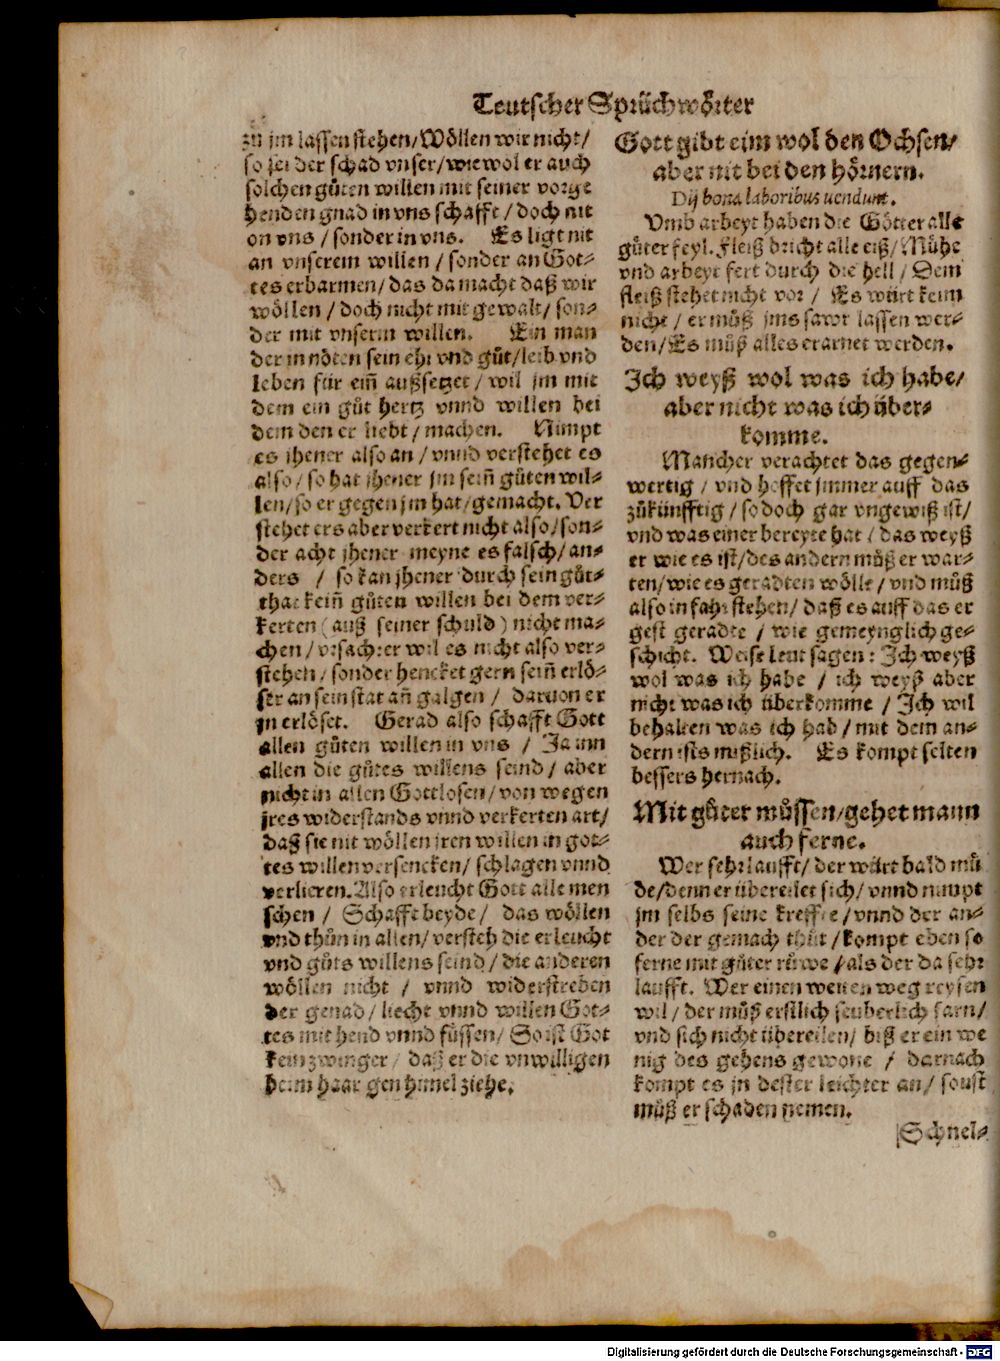 Teutscher Sprüchwörter
zu jm lassen stehen/Wöllen wir nicht/
so sei der schad vnser/wie wol er auch
solchen gůten willen mit seiner vorge
henden gnad in vns schafft/doch nit
on vns/sonder in vns. Es ligt nit
an vnserem willen/sonder an Got⸗
tes erbarmen/das da macht daß wir
wöllen/doch nicht mit gewalt/son⸗
der mit vnserm willen. Ein man
der in nöten sein ehr vnd gůt/leib vnd
leben für ein̄ außsetzet/wil jm mit
dem ein gůt hertz vnnd willen bei
dem den er liebt/machen. Nimpt
es jhener also an/vnnd verstehet es
also/so hat jhener jm sein̄ gůten wil⸗
len/so er gegen jm hat/gemacht. Ver
stehet ers aber verkert nicht also/son⸗
der acht jhener meyne es falsch/an⸗
ders / so kan jhener durch sein gůt⸗
that kein̄ gůten willen bei dem ver⸗
kerten (auß seiner schuld) nicht ma⸗
chen/vrsach:er wil es nicht also ver⸗
stehen/sonder hencket gern sein̄ erlö⸗
ser an sein stat an̄ galgen/daruon er
jn erlöset. Gerad also schafft Gott
allen gůten willen in vns / Ja inn
allen die gůtes willens seind/aber
nicht in allen Gottlosen/von wegen
jres widerstands vnnd verkerten art/
daß sie nit wöllen jren willen in got⸗
tes willen versencken/schlagen vnnd
verlieren. Also erleucht Gott alle men
schen / Schafft beyde/ das wöllen
vnd thůn in allen/versteh die erleucht
vnd gůts willens seind/die anderen
wöllen nicht / vnnd widerstreben
der genad/liecht vnnd willen Got⸗
tes mit hend vnnd füssen/So ist Got
kein zwinger/daß er die vnwilligen
beim haar gen himel ziehe.
Gott gibt eim wol den Ochsen/
aber nit bei den hörnern.
Dij bona laboribus uendunt.
Vmb arbeyt haben die Götter alle
gůter feyl. Fleiß bricht alle eiß/Mühe
vnd arbeyt fert durch die hell/Dem
fleiß stehet nicht vor/ Es würt keim
nicht/er můß jms sawr lassen wer⸗
den/Es můß alles erarnet werden.
Ich weyß wol was ich habe/
aber nicht was ich über⸗
komme.
Mancher verachtet das gegen⸗
wertig/vnd hoffet jmmer auff das
zůkünfftig/so doch gar vngewiß ist/
vnd was einer bereyte hat/das weyß
er wie es ist/des andern můß er war⸗
ten/wie es geradten wölle/vnd můß
also in fahr stehen/daß es auff das er
gest geradte/wie gemeynglich ge⸗
schicht. Weise leut sagen: Ich weyß
wol was ich habe / ich weyß aber
nicht was ich überkomme/Ich wil
behalten was ich hab/mit dem an⸗
dern ists mißlich. Es kompt selten
bessers hernach.
Mit gůter můssen/gehet mann
auch ferne.
Wer sehr laufft/der würt bald mů
de/denn er übereilet sich/vnnd nimpt
jm selbs seine kreffte/vnnd der an⸗
der der gemach thůt/kompt eben so
ferne mit gůter růwe/als der da sehr
laufft. Wer einen weiten weg reysen
wil/der můß erstlich seuberlich farn/
vnd sich nicht übereilen/biß er ein we
nig des gehens gewone / darnach
kompt es jn dester leichter an/sonst
můß er schaden nemen.
Schnel⸗
Digitalisierung gefördert durch die Deutsche Forschungsgemeinschaft - DFG